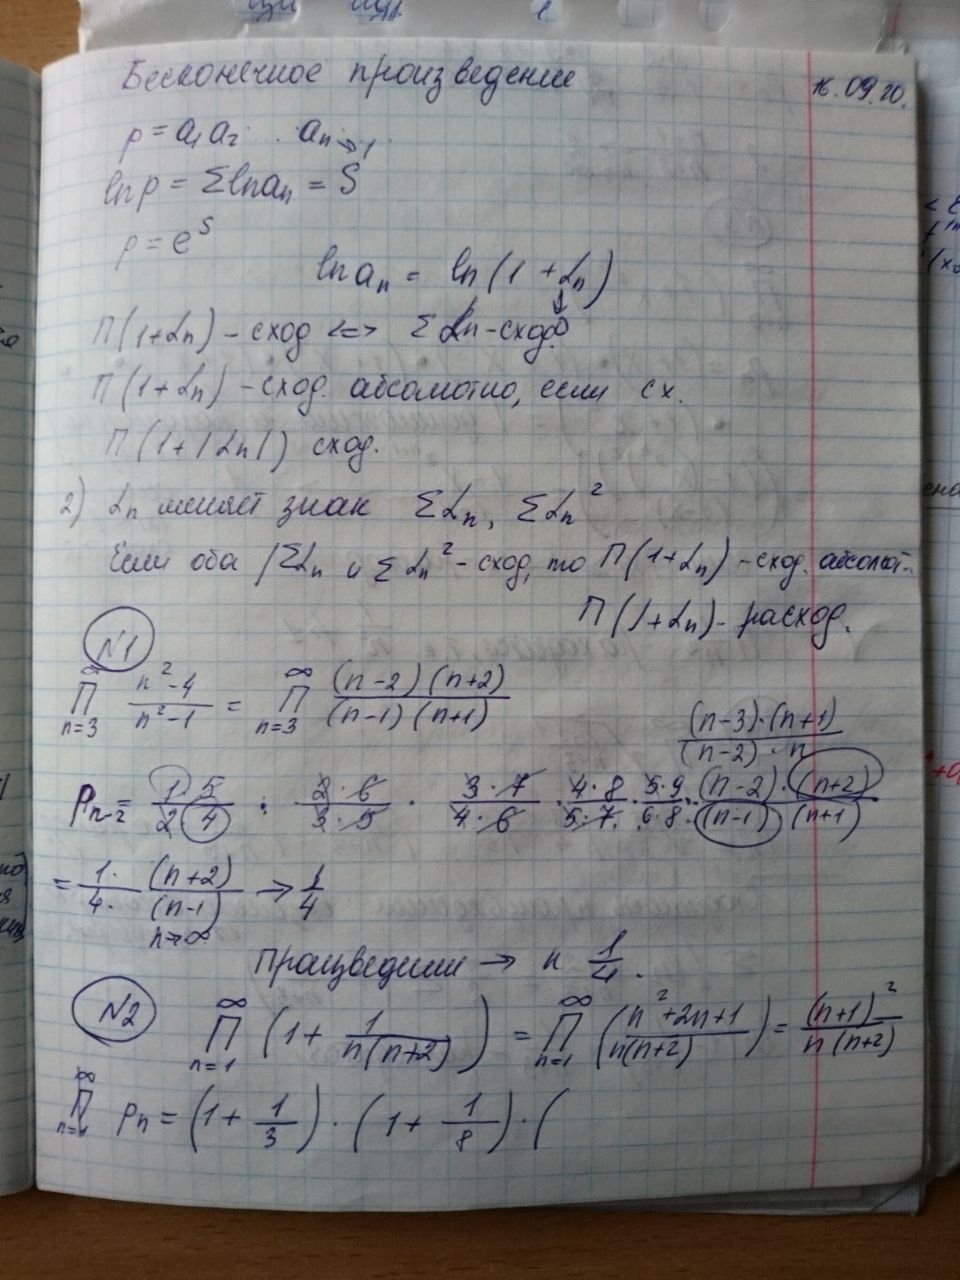 Бесконечное произведение 16.09.20.
p = a₁ a₂ ... aₙ → 1
ln p = Σ ln aₙ = S
p = e^S
ln aₙ = ln (1 + αₙ)
↓
0
П(1+αₙ) - сход <=> Σ αₙ - сход.
П(1+αₙ) - сход. абсолютно, если сх.
П(1+|αₙ|) сход.
2) αₙ меняет знак Σαₙ, Σαₙ²
Если оба |Σαₙ и Σαₙ² - сход, то П(1+αₙ) - сход. абсолют.
П(1+αₙ) - расход.
N1
∞ П n=3 (n²-4)/(n²-1) = ∞ П n=3 ((n-2)(n+2))/((n-1)(n+1))
((n-3)·(n+1))/((n-2)·n)
Pₙ₋₂ = (1·5)/(2·4) · (2·6)/(3·5) · (3·7)/(4·6) · (4·8)/(5·7) · (5·9)/(6·8) · ((n-2)·(n+2))/((n-1)·(n+1))
= (1·(n+2))/(4·(n-1)) → 1/4
n→∞
Произведении → к 1/4.
N2 ∞ П n=1 (1 + 1/(n(n+2))) = ∞ П n=1 ((n²+2n+1)/(n(n+2))) = (n+1)²/(n(n+2))
∞ П n=1 pₙ = (1 + 1/3) · (1 + 1/8) · (